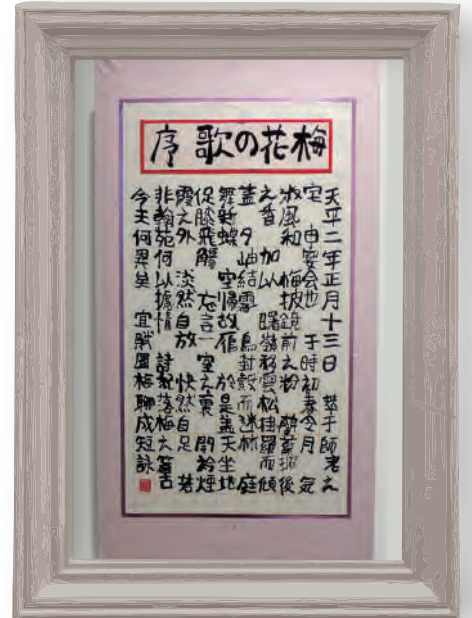 梅花の歌 序
天平二年正月十三日 萃于師老之
宅 申宴会也 于時初春令月 気
淑風和 梅披鏡前之粉 蘭薫珮後
之香 加以 曙嶺移雲松掛羅而傾
蓋 夕岫結霧 鳥封縠而迷林 庭
舞新蝶 空帰故雁 於是蓋天坐地
促膝飛觴 忘言一室之裏 開衿煙
霞之外 淡然自放 快然自足 若
非翰苑何以攄情 詩紀落梅之篇古
今夫何異矣 宜賦園梅聊成短詠